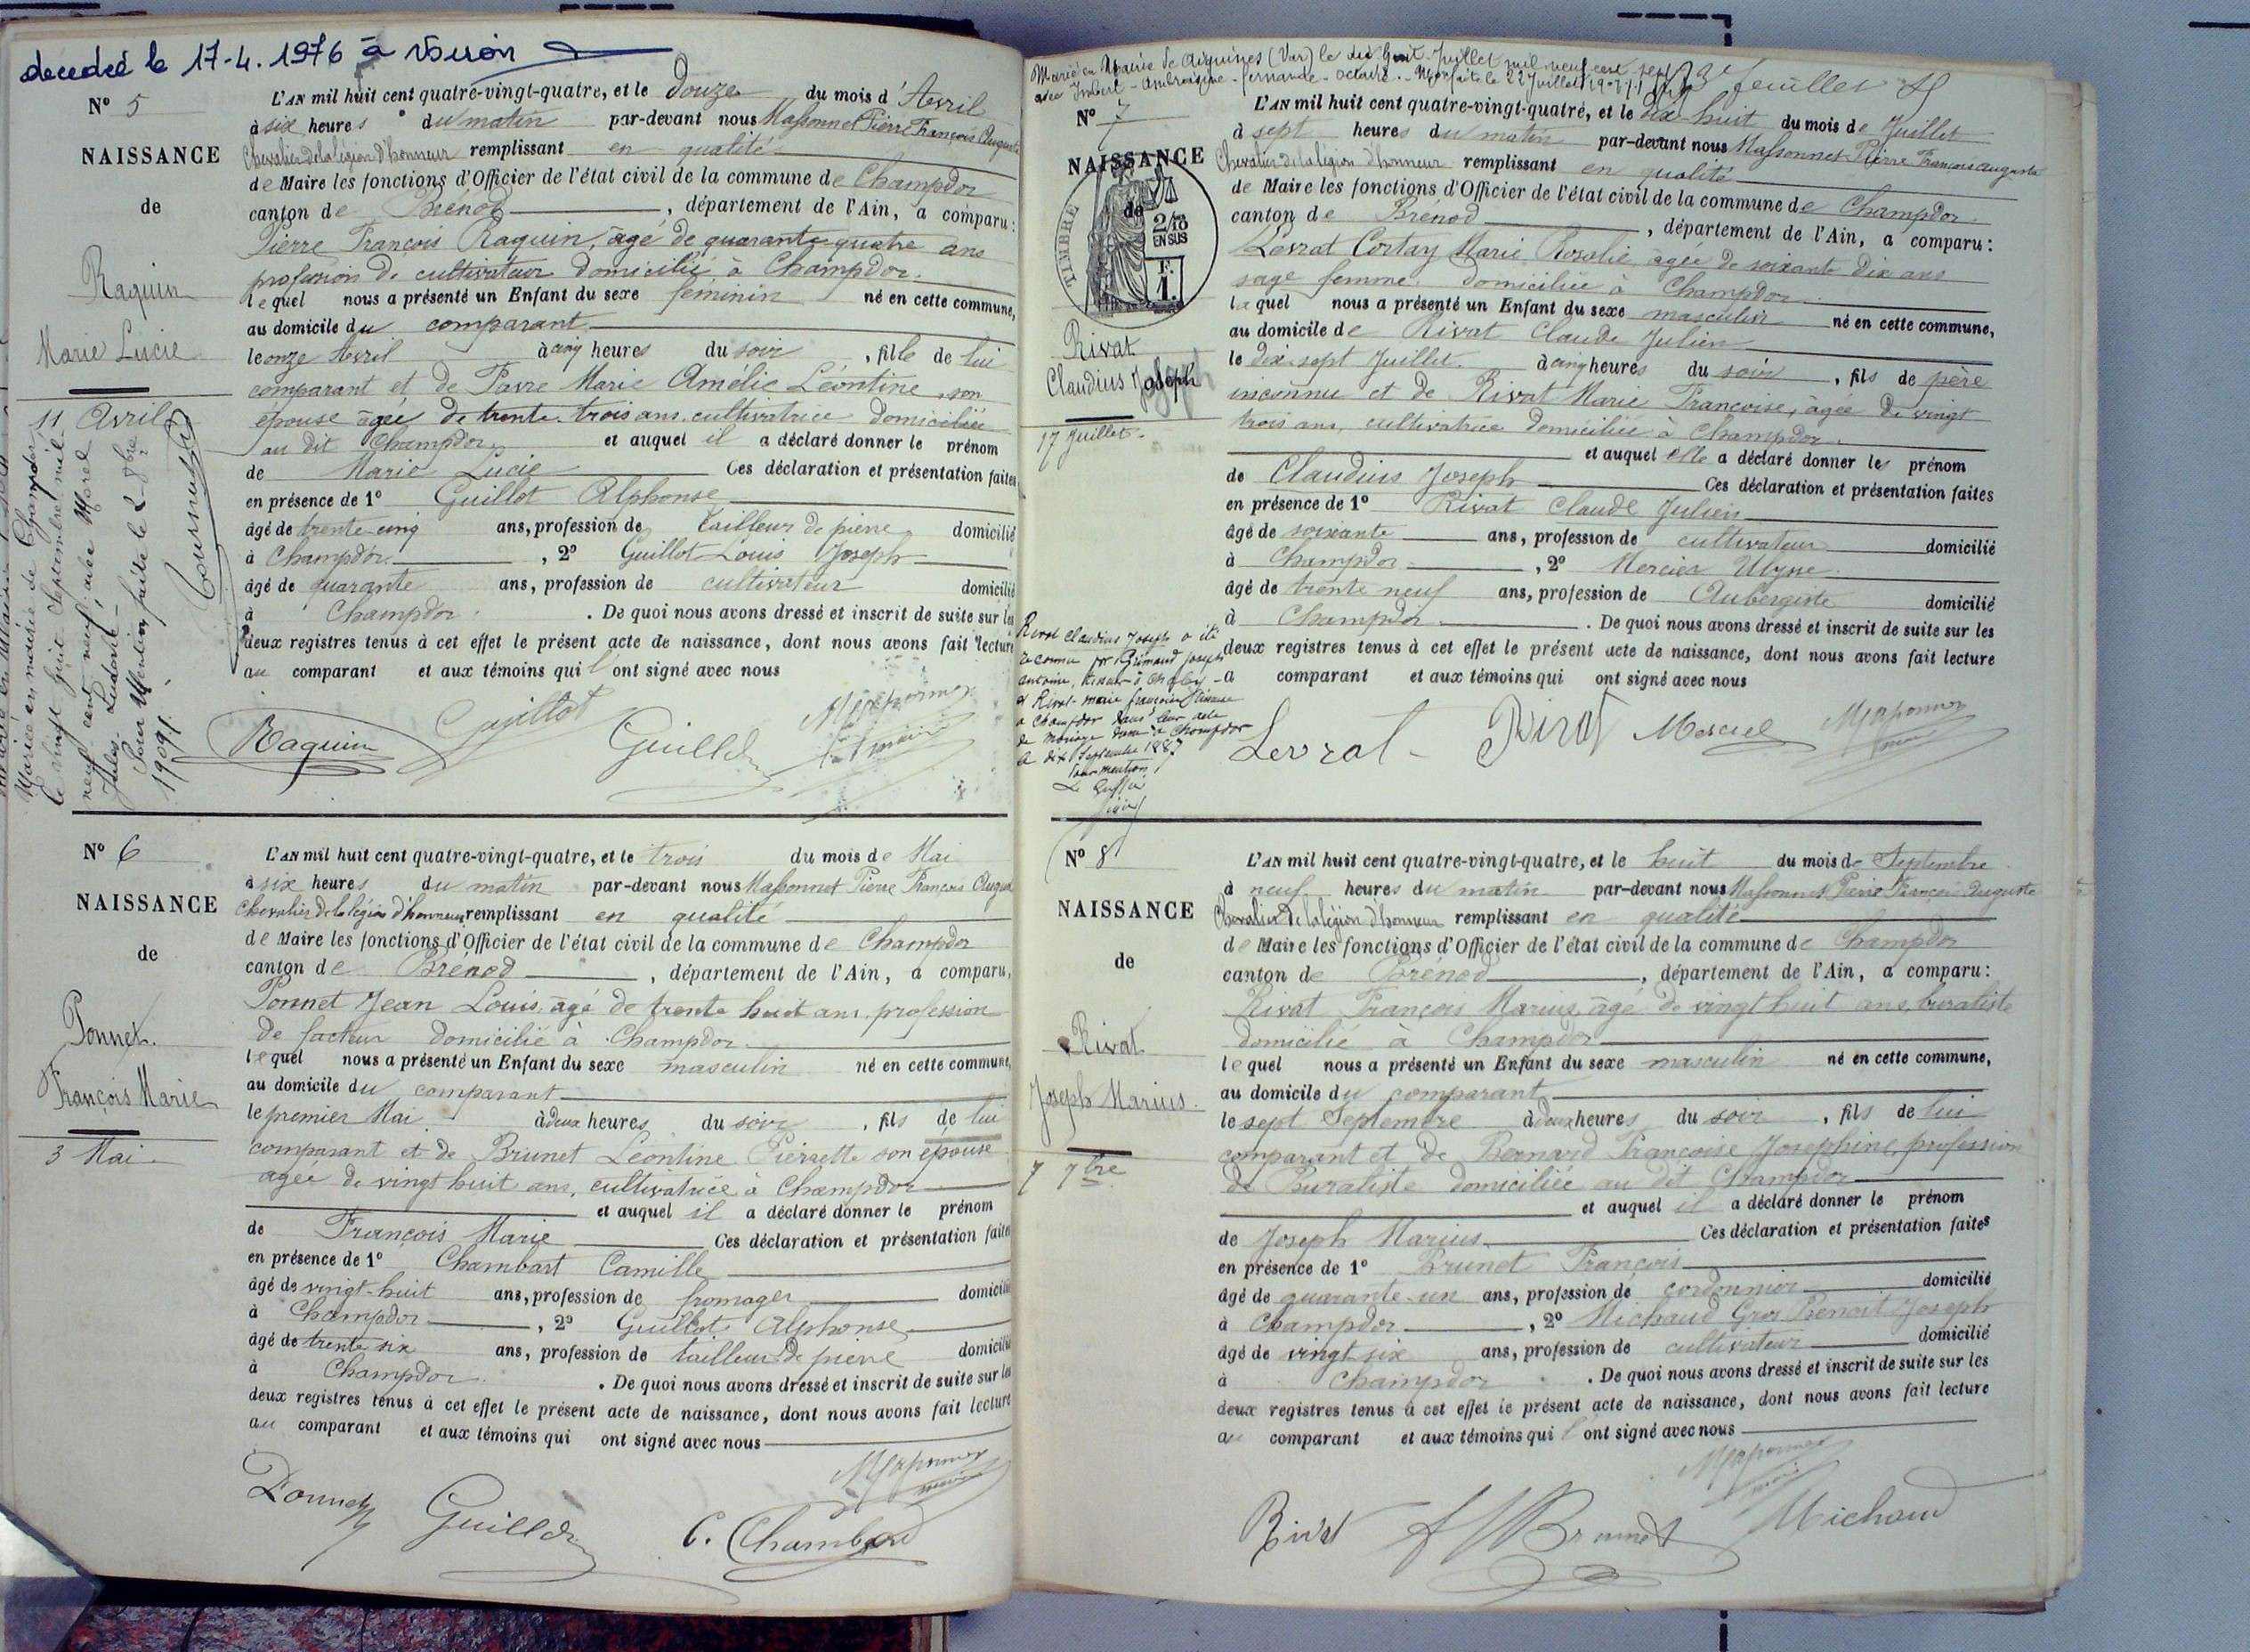 decedée le 17-4. 1976 à Voiron
N° 5
NAISSANCE
de
Raquin
Marie Lucie
11 Avril
Mariée en mairie de Champdor
le vingt huit Septembre mil
neuf cent neuf, avec Morel
Jules Ludovic
Pour Mention faite le 2 8bre
1909
L'AN mil huit cent quatre-vingt-quatre, et le douze du mois d'Avril
à six heures du matin par-devant nous Massonnet Pierre François Auguste
Chevalier de la légion d'honneur remplissant en qualité
de Maire les fonctions d'Officier de l'état civil de la commune de Champdor
canton de Brénod, département de l'Ain, a comparu:
Pierre François Raquin, âgé de quarante quatre ans
profession de cultivateur domicilié à Champdor.
lequel nous a présenté un Enfant du sexe féminin né en cette commune,
au domicile du comparant
le onze Avril à cinq heures du soir, fille de lui
comparant et de Favre Marie Amélie Léontine, son
épouse âgée de trente-trois ans, cultivatrice domiciliée
au dit Champdor, et auquel il a déclaré donner le prénom
de Marie Lucie Ces déclaration et présentation faites
en présence de 1° Guillot Alphonse
âgé de trente-cinq ans, profession de tailleur de pierre domicilié
à Champdor, 2° Guillot Louis Joseph
âgé de quarante ans, profession de cultivateur domicilié
à Champdor. De quoi nous avons dressé et inscrit de suite sur les
deux registres tenus à cet effet le présent acte de naissance, dont nous avons fait lecture
au comparant et aux témoins qui l'ont signé avec nous
Raquin Guillot Guillot Massonnet
N° 6
NAISSANCE
de
Ponnet
François Marie
3 Mai
L'AN mil huit cent quatre-vingt-quatre, et le trois du mois de Mai
à six heures du matin par-devant nous Massonnet Pierre François Auguste
Chevalier de la légion d'honneur remplissant en qualité
de Maire les fonctions d'Officier de l'état civil de la commune de Champdor
canton de Brénod, département de l'Ain, a comparu,
Ponnet Jean Louis, âgé de trente huit ans, profession
de facteur domicilié à Champdor
lequel nous a présenté un Enfant du sexe masculin né en cette commune,
au domicile du comparant
le premier Mai à deux heures du soir, fils de lui
comparant et de Brunet Léontine Pierrette son épouse
agée de vingt huit ans, cultivatrice à Champdor
et auquel il a déclaré donner le prénom
de François Marie Ces déclaration et présentation faites
en présence de 1° Chambart Camille
âgé de vingt-huit ans, profession de fromager domicilié
à Champdor, 2° Guillot Alphonse
âgé de trente six ans, profession de tailleur de pierre domicilié
à Champdor. De quoi nous avons dressé et inscrit de suite sur les
deux registres tenus à cet effet le présent acte de naissance, dont nous avons fait lecture
au comparant et aux témoins qui ont signé avec nous
Massonnet
maire
Ponnet Guillot C. Chambard
Marié en Mairie de Aiguines (Var) le dix huit Juillet mil neuf cent sept
avec Imbert - Ambroisine - fernande - octavie. 22 Juillet
3e feuillet
N° 7
NAISSANCE
de
TIMBRE
2/10
EN SUS
F.
1.
Rivat
Claudius Joseph
17 Juillet.
Rivat Claudius Joseph a été
reconnu par Grimaud Joseph
antoine,
et Rivat marie françoise
a Champdor dans leur acte
de mariage à Champdor
le dix Septembre 1887
Pour mention
L'AN mil huit cent quatre-vingt-quatre, et le dix-huit du mois de Juillet
à sept heures du matin par-devant nous Massonnet Pierre François Auguste
Chevalier de la légion d'honneur remplissant en qualité
de Maire les fonctions d'Officier de l'état civil de la commune de Champdor
canton de Brénod, département de l'Ain, a comparu:
Levrat Cortay Marie Rosalie, agée de soixante dix ans
sage femme, domiciliée à Champdor
laquel nous a présenté un Enfant du sexe masculin né en cette commune,
au domicile de Rivat Claude Julien
le dix-sept Juillet à cinq heures du soir, fils de père
inconnu et de Rivat Marie Françoise, âgée de vingt
trois ans, cultivatrice domiciliée à Champdor.
et auquel elle a déclaré donner les prénom
de Claudius Joseph Ces déclaration et présentation faites
en présence de 1° Rivat Claude Julien
âgé de soixante ans, profession de cultivateur domicilié
à Champdor, 2° Mercier Ulysse
âgé de trente neuf ans, profession de Aubergiste domicilié
à Champdor. De quoi nous avons dressé et inscrit de suite sur les
deux registres tenus à cet effet le présent acte de naissance, dont nous avons fait lecture
a comparant et aux témoins qui ont signé avec nous
Levrat Rivat Mercier Massonnet
maire
N° 8
NAISSANCE
de
Rivat
Joseph Marius
7 7bre
L'AN mil huit cent quatre-vingt-quatre, et le huit du mois de Septembre
à neuf heures du matin par-devant nous Massonnet Pierre François Auguste
Chevalier de la légion d'honneur remplissant en qualité
de Maire les fonctions d'Officier de l'état civil de la commune de Champdor
canton de Brénod, département de l'Ain, a comparu:
Rivat François Marius, âgé de vingt huit ans, buraliste
domicilié à Champdor
lequel nous a présenté un Enfant du sexe masculin né en cette commune,
au domicile du comparant
le sept Septembre à deux heures du soir, fils de lui
comparant et de Bernard Françoise Josephine, profession
de Buraliste domiciliée au dit Champdor
et auquel il a déclaré donner le prénom
de Joseph Marius. Ces déclaration et présentation faites
en présence de 1° Brunet François
âgé de quarante-un ans, profession de cordonnier domicilié
à Champdor, 2° Michaud Gros Benoit Joseph
âgé de vingt six ans, profession de cultivateur domicilié
à Champdor. De quoi nous avons dressé et inscrit de suite sur les
deux registres tenus à cet effet le présent acte de naissance, dont nous avons fait lecture
au comparant et aux témoins qui l'ont signé avec nous
Massonnet
maire
Rivat Brunet Michaud